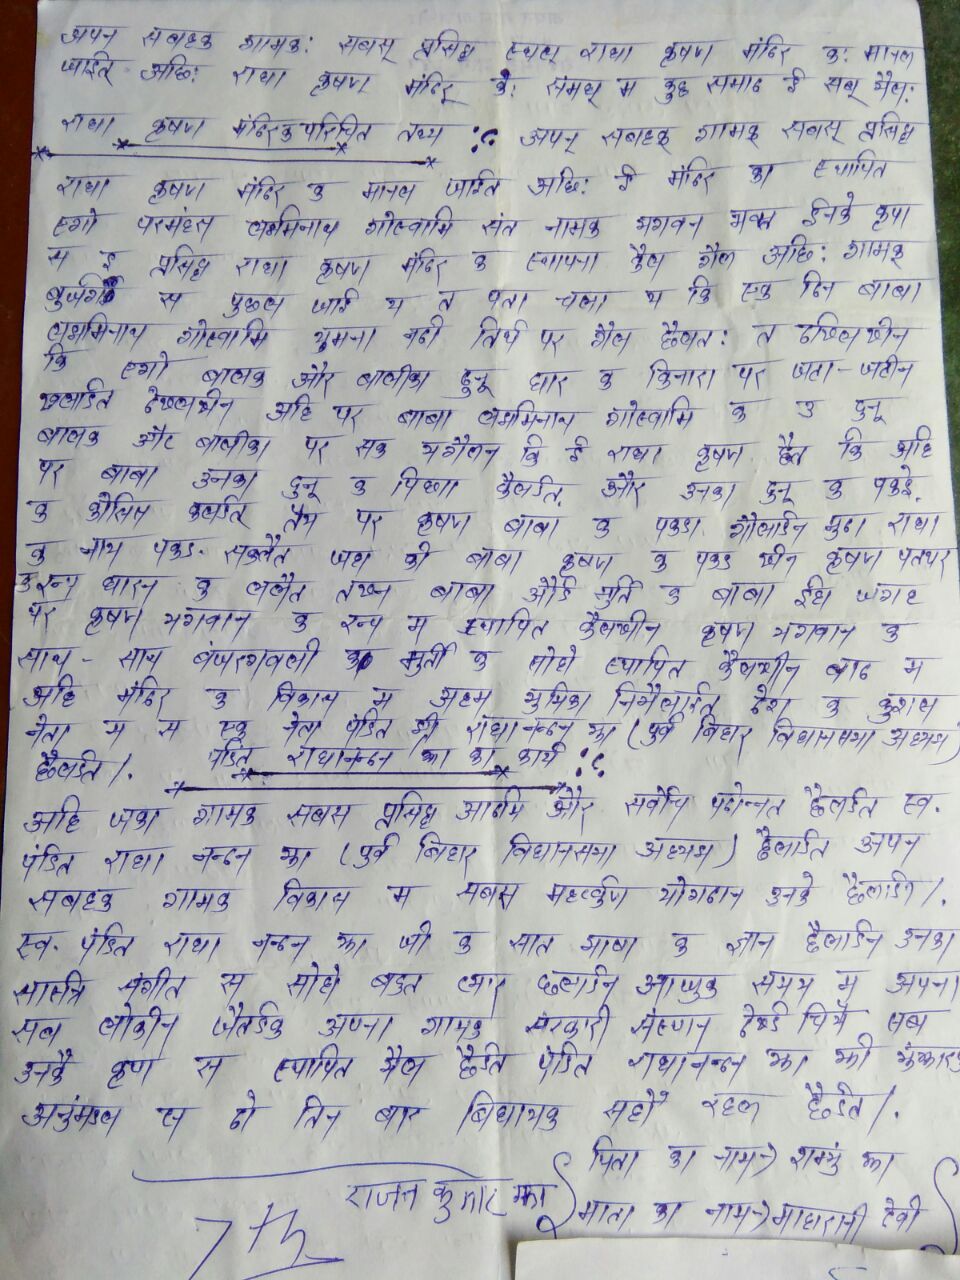 अपन सबहक गामक: सबस् प्रसिध्ध स्थल राधा कृष्ण मंदिर क: मानल
जाईत अछि: राधा कृष्ण मंदिर के: संमध् म कुछ समाद ई सब् भेल:
राधा कृष्ण मंदिरक परिचित तथ्य :: अपन् सबहक् गामक् सबस् प्रसिध्ध
राधा कृष्ण मंदिर क मानल जाईत अछि: ई मंदिर का स्थापित
एगो परमंहस लक्ष्मिनाथ गोस्वामि संत नामक भगवन भक्त ईनके कृपा
स ई प्रसिध्ध राधा कृष्ण मंदिर क स्थापना कैल गैल अछि: गामक्
बुर्जग स पुछल जाई य त पता चला य कि एक दिन बाबा
लक्ष्मिनाथ गोस्वामि युमना नदी तिर्थ पर गैल छैलत: त देखिलखीन
कि एगो बालक और बालीका दुनू धार क किनारा पर जटा-जटीन
खेलाईत देखलखीन अहि पर बाबा लक्ष्मिनाथ गोस्वामि क उ दुनू
बालक और बालीका पर सक भगेलैन कि ई राधा कृष्ण छैत कि अहि
पर बाबा उनका दुनू क पिछा कैलईत और उनका दुनू क पकडै.
क कोसिस कलईत तैय पर कृष्ण बाबा क पकडा गेलाईन मुदा राधा
क नाय पकड सकलैत जब की बाबा कृष्ण क पकड छीन कृष्ण पतथर
क रूप धारन क ललैत तखन बाबा ओई मुर्ति क बाबा ईह जगह
पर कृष्ण भगवान क रूप म स्थापित कैलखीन कृष्ण भगवान क
साथ-साथ बंजरंगवली क मुर्ती क सोहो स्थापित कैलखीन बाद म
अहि मंदिर क विकास म अहम भुमिका निभैलाईत देश क कुशल
नेता म स एक नेता पंडित श्री राधा नन्दन झा (पुर्व बिहार विधानसभा अध्यक्ष)
छैलईत/. पंडित राधानन्दन झा का कार्य ::
अहि जका गामक सबस प्रसिध्ध आदमि और सर्वोच पदोन्नत छैलाईत स्व.
पंडित राधा नन्दन झा (पुर्व बिहार विधानसभा अध्यक्ष) छैलाईत अपन
सबहक गामक विकास म सबस महर्त्वपुण योगदान उनके छैलाईन/.
स्व. पंडित राधा नन्दन झा जी क सात भाषा क ज्ञान छैलाईन उनका
संगीत स सोहो बहुत छलाईन आजुक समय म अपना
सब लोकीन अपना गामक सरकारी संस्थान सब
उनकै कृपा स स्थापित भैल छैईत पंडित राधानन्दन झा जी
अनुमंडल स दो तिन बार बिधायक सहो रहल छैईत/.
पिता का नाम→ शम्भु झा
राजन कुमार झा
माता का नाम→ माहारानी देवी